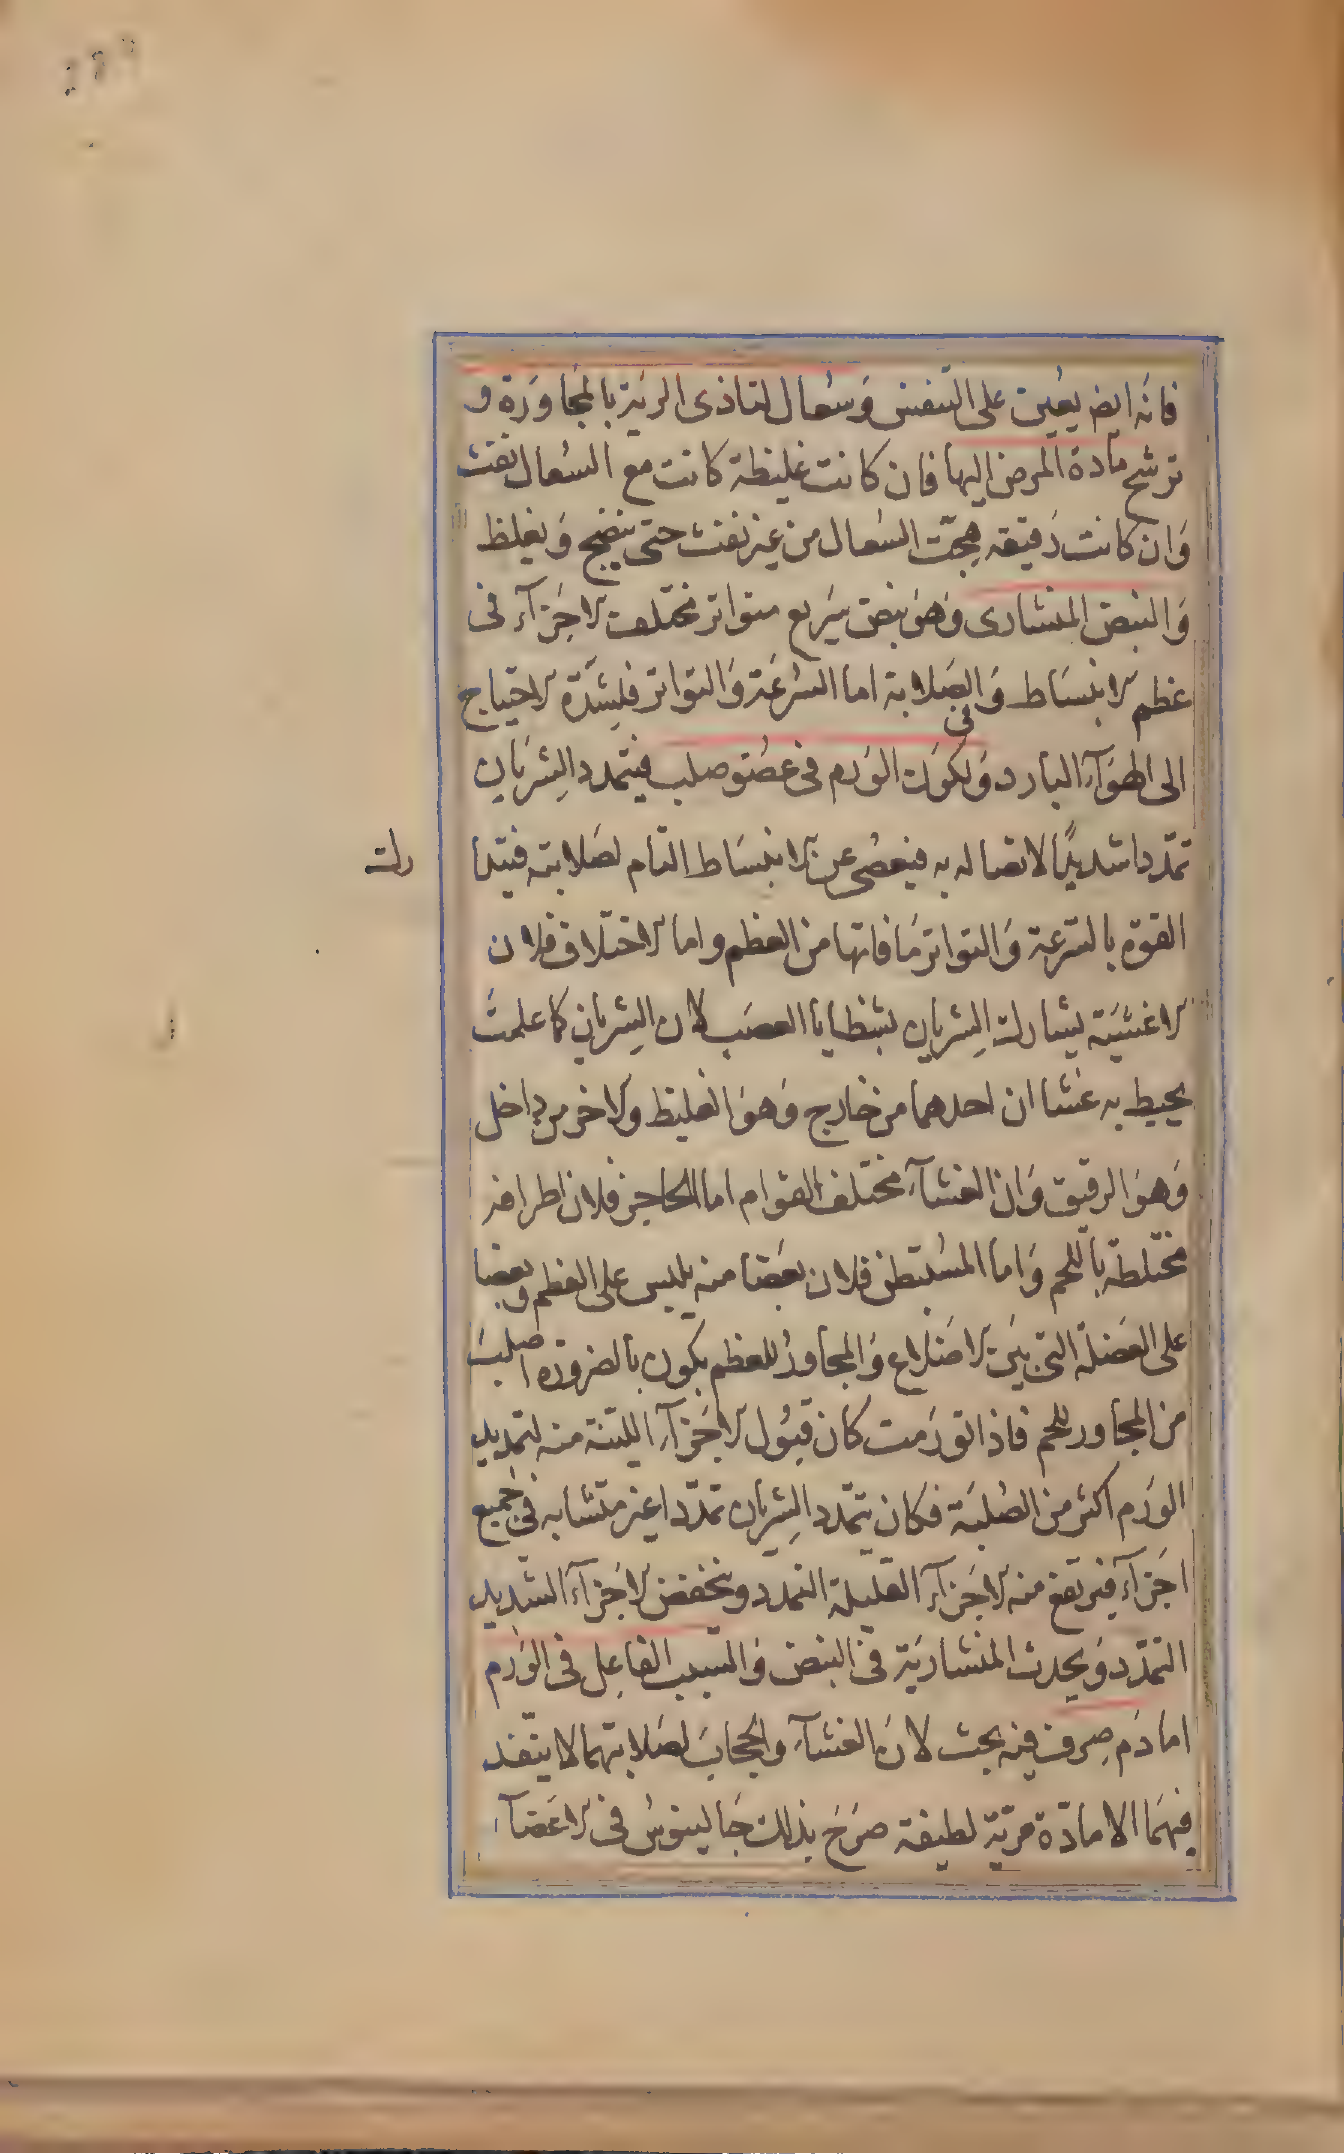 فانه ايض يعين على التنفس وسعال لتاذى الرئة بالمجاورة و
ترشح مادة المرض اليها فان كانت غليظة كانت مع السعال نفث
وان كانت رقيقه هيجت السعال من غير نفث حتى ينضج ويغلظ
والنبض المنشارى وهو نبض سريع متواتر مختلف الاجزآء فى
عظم الانبساط وفى الصلابة اما السرعة والتواتر فلشدة الاحتياج
الى الهوآء البارد ولكون الورم فى عضو صلب فيتمدد الشريان
تمددا شديدًا لاتصاله به فيعصى عن الانبساط التام لصلابته فيتدا
رك
القوة بالسرعة والتواتر ما فاتها من العظم واما الاختلاف فلان
الاغشية يشارك الشريان بشظايا العصب لان الشريان كما علمت
يحيط به غشاان احدهما من خارج وهو الغليظ والاخر من داخل
وهو الرقيق وان الغشآء مختلف القوام اما الحاجز فلان اطرافه
مختلطة باللحم واما المستبطن فلان بعضا منه يلبس على العظم وبعضا
على العضلة التى بين الاضلاع والمجاور للعظم يكون بالضرورة اصلب
من المجاور للحم فاذا تورمت كان قبول الاجزآء اللينة منه لتمديد
الورم اكثر من الصلبة فكان يتمدد الشريان تمددا غير متشابه فى جميع
اجزآء فيرتفع منه الاجزآء القليلة التمدد وينخفض الاجزآء الشديد
التمدد ويحدث المنشارية فى النبض والسبب الفاعل فى الورم
اما دم صرف فيه بحث لان الغشآء والحجاب لصلابتهما لا ينفذ
فيهما الا مادة مرية لطيفة صرح بذلك جالينوس فى الاعضآء